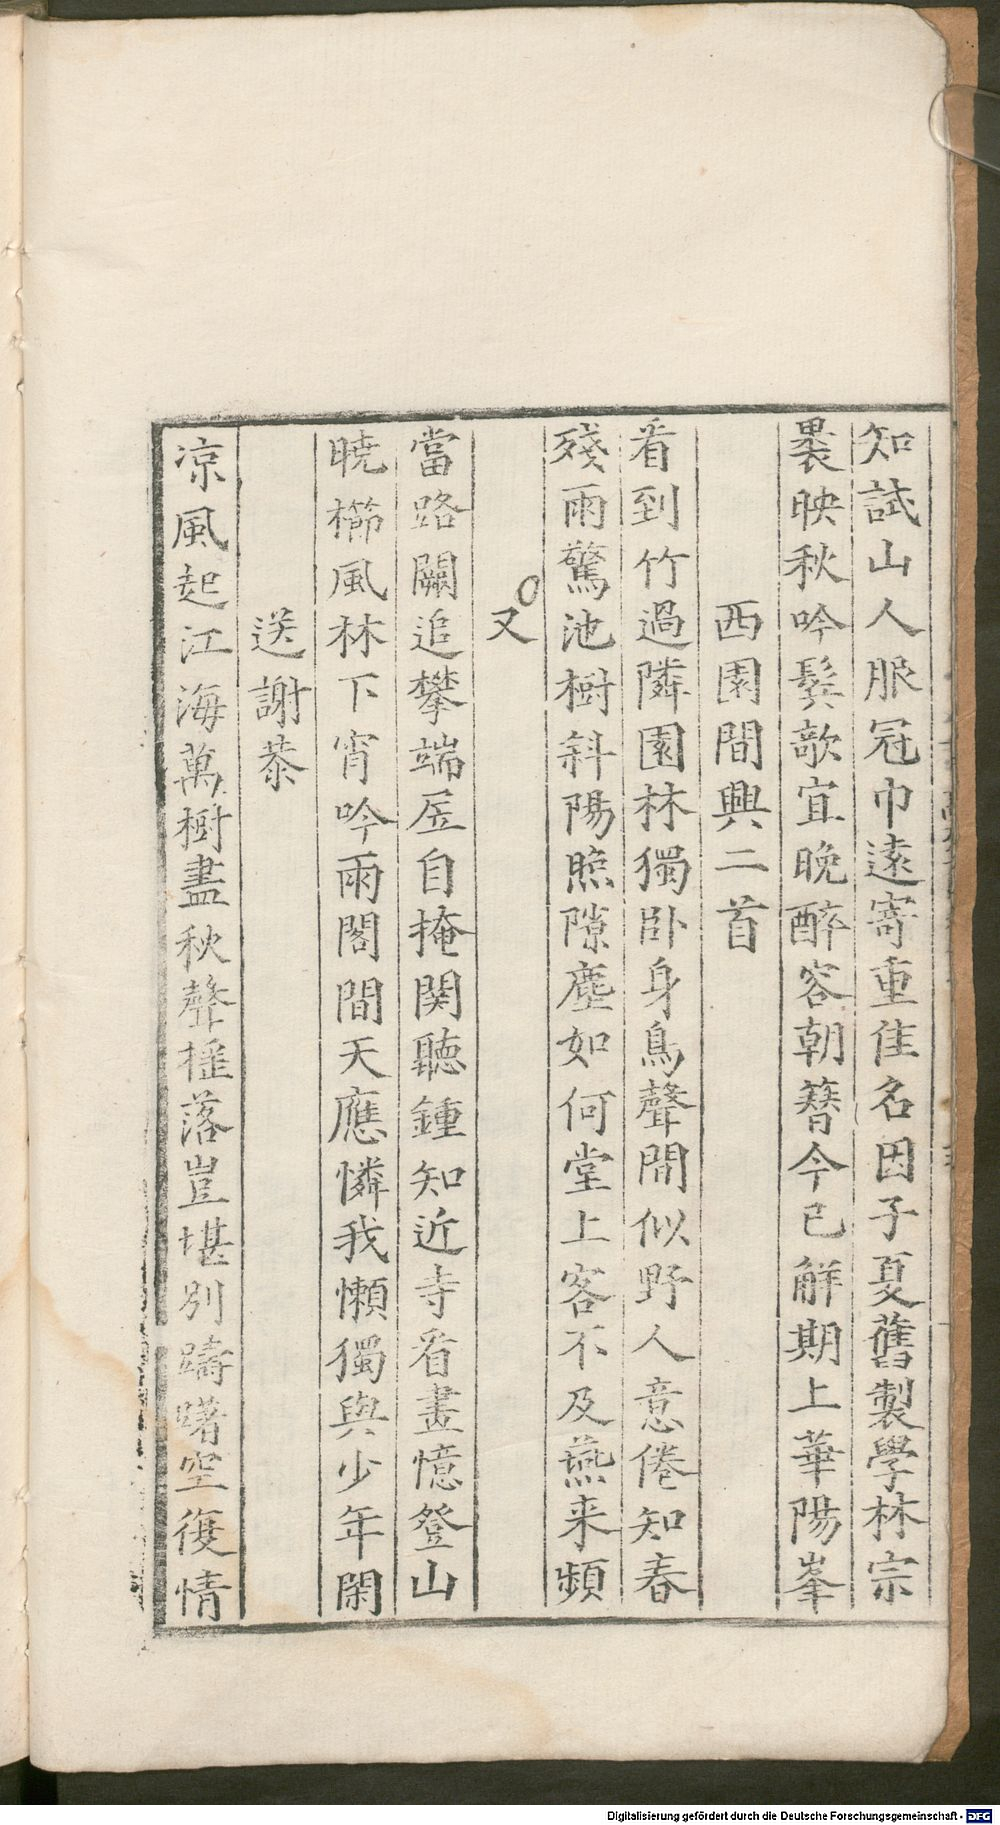 知試山人服冠巾遠寄重佳名因子夏舊製學林宗
裹映秋吟鬂欹宜晚醉容朝簪今已解期上華陽峯
西園閒興二首
看到竹過隣園林獨卧身鳥聲閒似野人意倦知春
殘雨驚池樹斜陽照隙塵如何堂上客不及燕来頻
又
當路闕追攀端居自掩関聽鍾知近寺看畫憶登山
暁櫛風林下宵吟雨閣間天應憐我懶獨與少年閑
送謝恭
凉風起江海萬樹盡秋聲揺落豈堪别躊躇空復情
Digitalisierung gefördert durch die Deutsche Forschungsgemeinschaft - DFG